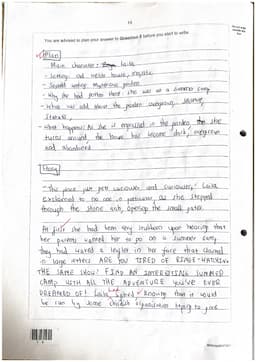 14
You are advised to plan your answer to Question 5 before you start to write
Plan
Main character: Laila
- Setting: old manor house, majestic
- Second setting: mysterious garden
- Why the hell there she was at a summer camp
- What was odd about the garden overgrown, silence,
- What happened? As she is engrossed in the garden, she
turns around, the house has become dark, overgrown
and abandoned
Story
"The place just gets weirder and weirder," Laila
exclaimed to no one in particular, as she stepped
through the stone arch, opening the small gate.
At first she had been very stubborn upon hearing that
her parents wanted her to go on a summer camp,
they had waved a leaflet in her face that claimed
in large letters ARE YOU TIRED OF BINGE-WATCHING
THE SAME SHOW? FIND AN INTERESTING SUMMER
CAMP WITH ALL THE ADVENTURE YOU'VE EVER
DREAMED OF! Laila had sighed knowing that it would
be run by some organisation trying to give